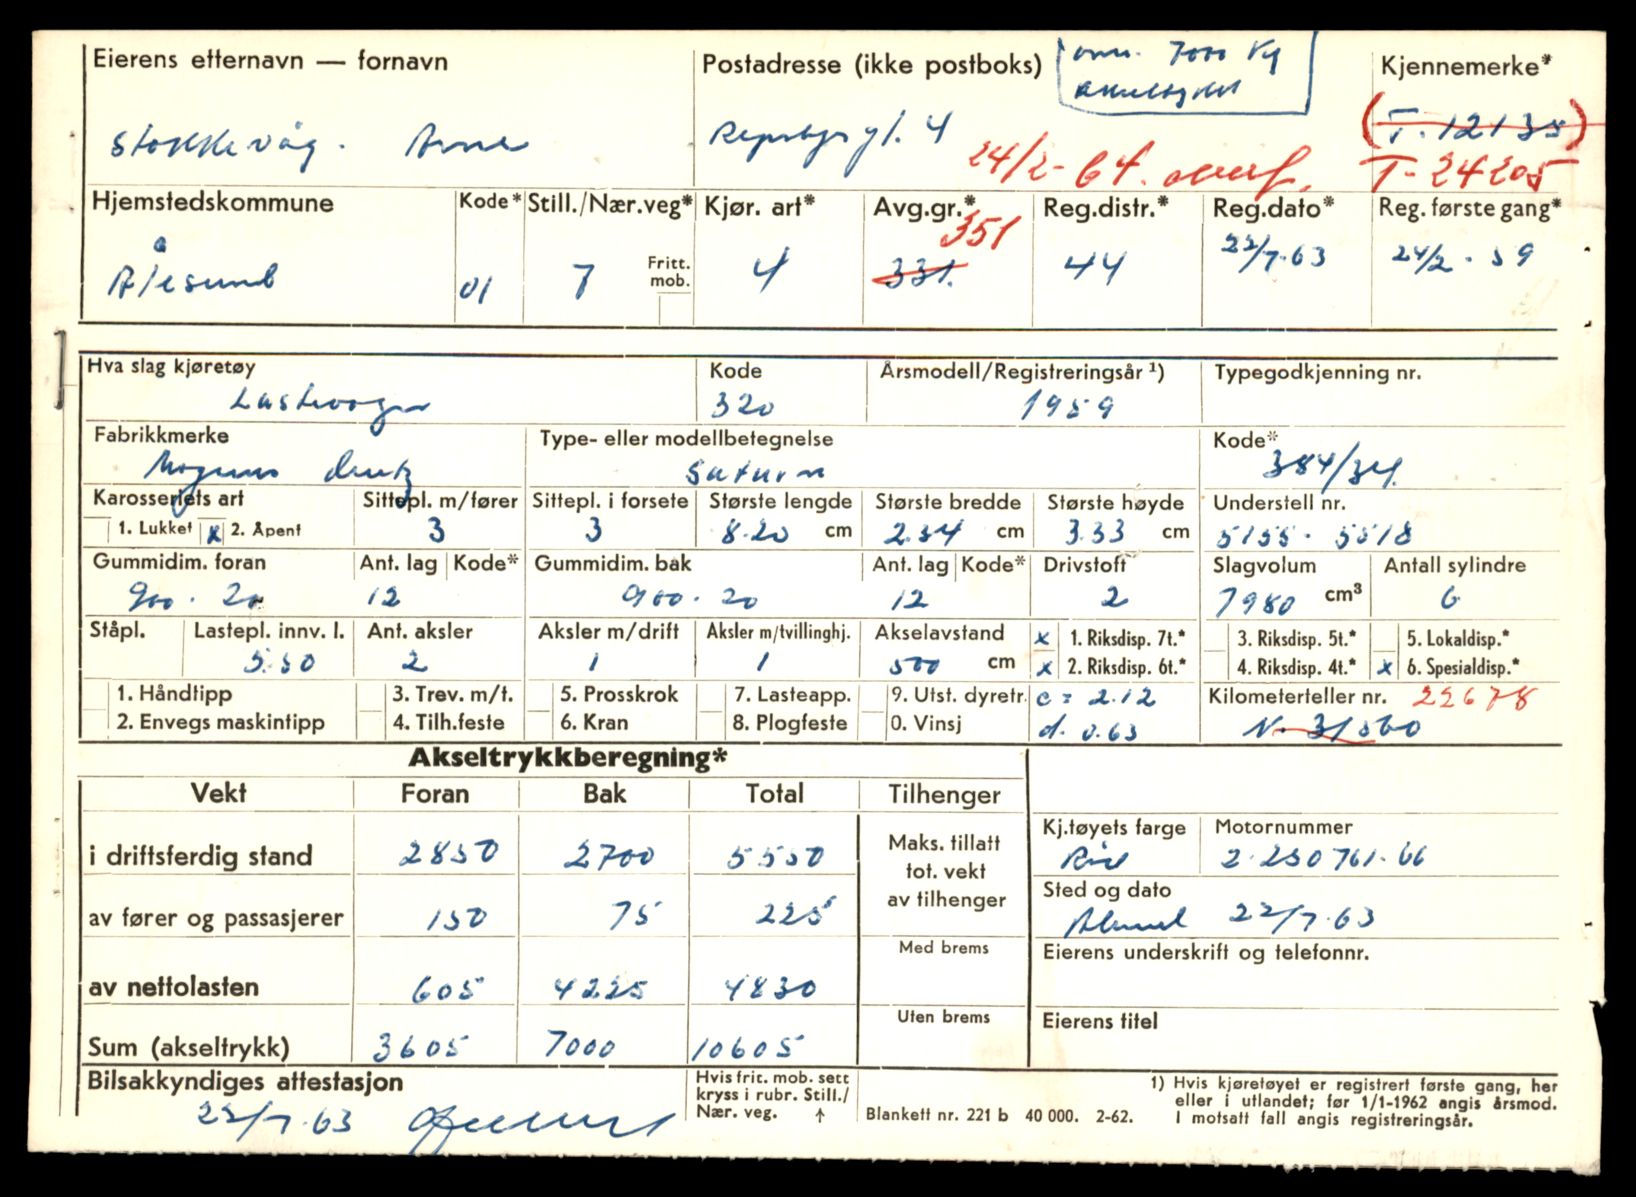 Eierens etternavn — fornavn
Postadresse (ikke postboks)
7000 Kg
Kjennemerke*
Stokkevåg. Arne
gt. 4
(T-12135)
24/2-64. overf.
T-24205
Hjemstedskommune
Kode*
Still./Nær.veg*
Kjør. art*
Avg.gr.*
Reg.distr.*
Reg.dato*
Reg. første gang*
351
Ålesund
01
7
Fritt. mob.
4
331.
44
22/7.63
24/2.59
Hva slag kjøretøy
Kode
Årsmodell/Registreringsår ¹)
Typegodkjenning nr.
Lastevogn
320
1959
Fabrikkmerke
Type- eller modellbetegnelse
Kode*
Magirus Deutz
Saturn
384/34.
Karosseriets art
Sittepl. m/fører
Sittepl. i forsete
Største lengde
Største bredde
Største høyde
Understell nr.
1. Lukket x 2. Åpent
3
3
8.20 cm
2.34 cm
3.33 cm
5155. 5518
Gummidim. foran
Ant. lag
Kode*
Gummidim. bak
Ant. lag
Kode*
Drivstoff
Slagvolum
Antall sylindre
900. 20
12
900. 20
12
2
7980 cm³
6
Ståpl.
Lastepl. innv. l.
Ant. aksler
Aksler m/drift
Aksler m/tvillinghj.
Akselavstand
x 1. Riksdisp. 7t.*
3. Riksdisp. 5t.*
5. Lokaldisp.*
5.50
2
1
1
500 cm
x 2. Riksdisp. 6t.*
4. Riksdisp. 4t.*
x 6. Spesialdisp.*
1. Håndtipp
3. Trev. m/t.
5. Prosskrok
7. Lasteapp.
9. Utst. dyretr.
c = 2.12
Kilometerteller nr. 22678
2. Envegs maskintipp
4. Tilh.feste
6. Kran
8. Plogfeste
0. Vinsj
d. 0.63
N. 31560
Akseltrykkberegning*
Vekt
Foran
Bak
Total
Tilhenger
i driftsferdig stand
2850
2700
5550
Maks. tillatt
tot. vekt
av tilhenger
Kj.tøyets farge
Motornummer
Rød
2.250761.66
av fører og passasjerer
150
75
225
Sted og dato
Ålesund 22/7.63
Med brems
Eierens underskrift og telefonnr.
av nettolasten
605
4225
4830
Uten brems
Eierens titel
Sum (akseltrykk)
3605
7000
10605
Bilsakkyndiges attestasjon
22/7.63
Hvis frit. mob. sett
kryss i rubr. Still./
Nær. veg. ↑
Blankett nr. 221 b 40 000. 2-62.
1) Hvis kjøretøyet er registrert første gang, her
eller i utlandet; før 1/1-1962 angis årsmod.
I motsatt fall angis registreringsår.